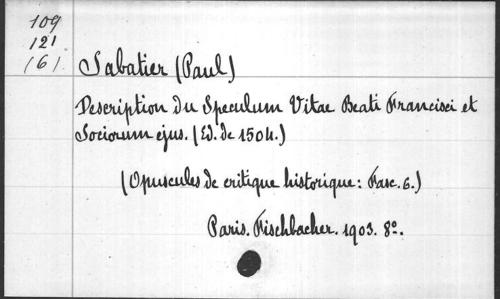 109
121
161.
Sabatier (Paul)
Description du Speculum Vitae Beati Francisci et
Sociorum ejus. (Ed. de 1504.)
(Opuscules de critique historique: Fasc. 6.)
Paris. Fischbacher. 1903. 8º.